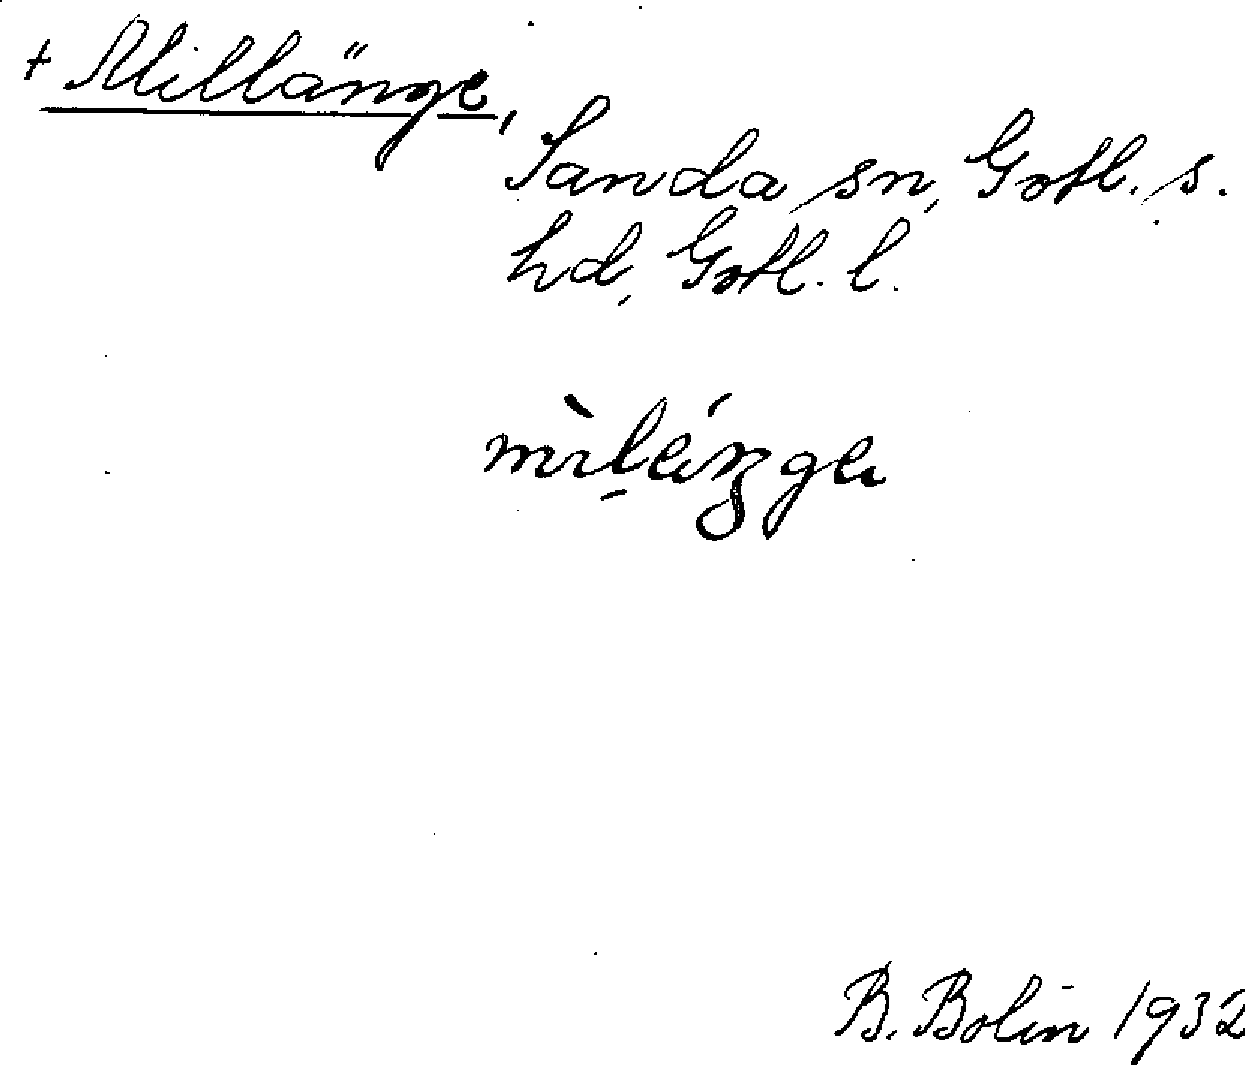 + Millänge,
Sanda sn, Gotl. s.
hd, Gotl. l.
B. Bolin 1932